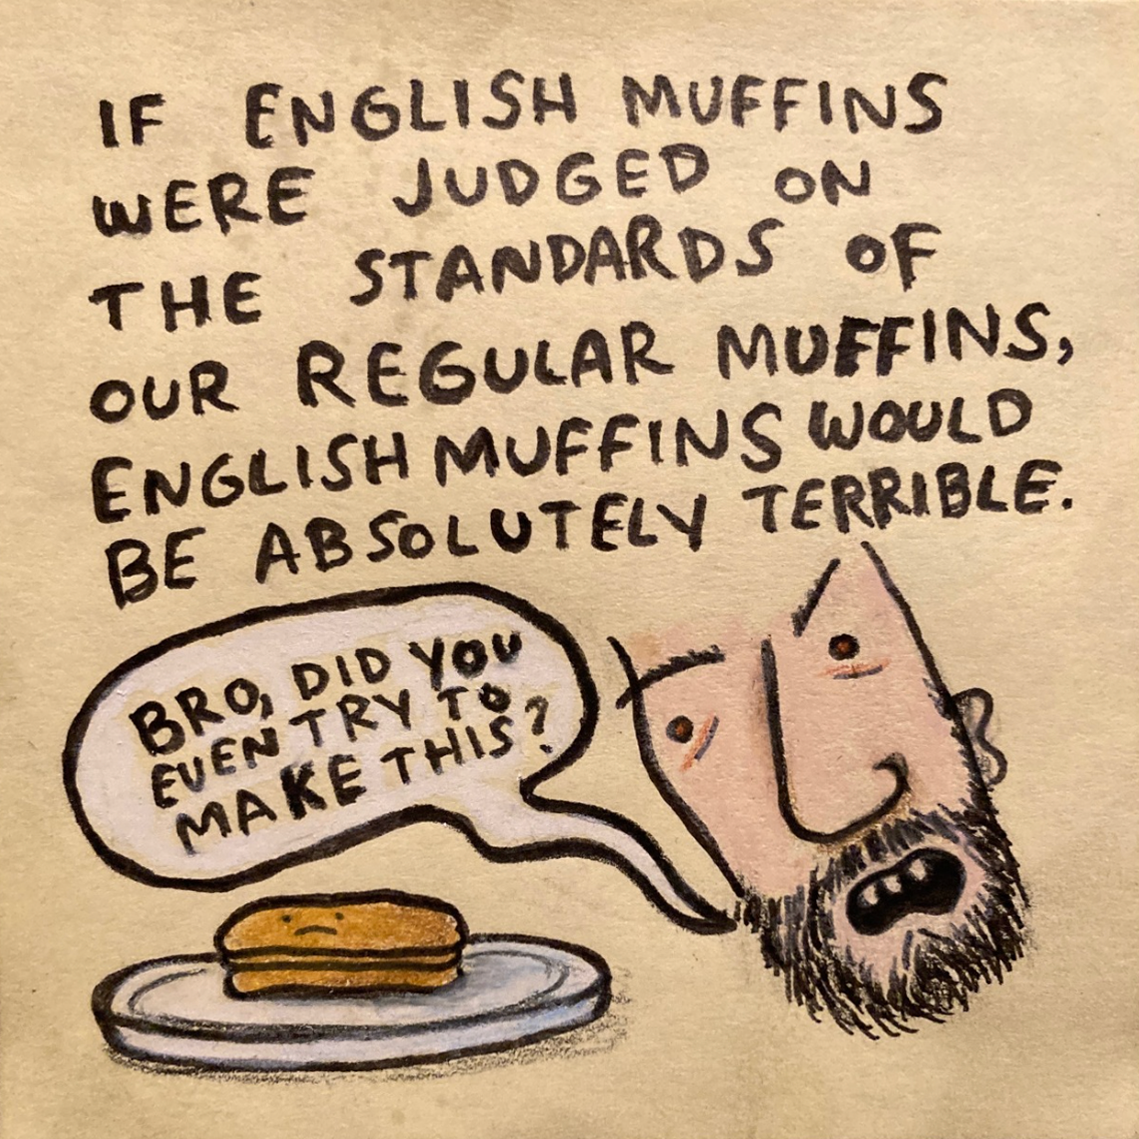 IF ENGLISH MUFFINS
WERE JUDGED ON
THE STANDARDS OF
OUR REGULAR MUFFINS,
ENGLISH MUFFINS WOULD
BE ABSOLUTELY TERRIBLE.
BRO, DID YOU
EVEN TRY TO
MAKE THIS?